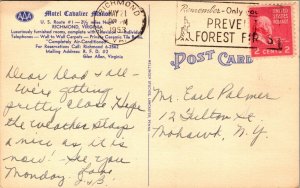 AAA
Motel Cavalier Manor
U. S. Route #1— 2½ miles North of
RICHMOND, VIRGINIA
Luxuriously furnished rooms, complete with
Wall to Wall Broadloom - Private Ceramic Tile Baths
"Completely Air-Conditioned."
For Reservations Call: Richmond
Mailing Address: R. F. D.
Glen Allen, Virginia
RICHMOND
Remember - Only
PREVENT
FOREST FIRES
2 CENTS
POST CARD
Dear Dad & all -
We're getting
pretty close. Hope
the weather stays
as nice as it is
now! See you
Monday. Love
Mr. Earl Palmer
12 Fulton St.
Mohawk, N.Y.